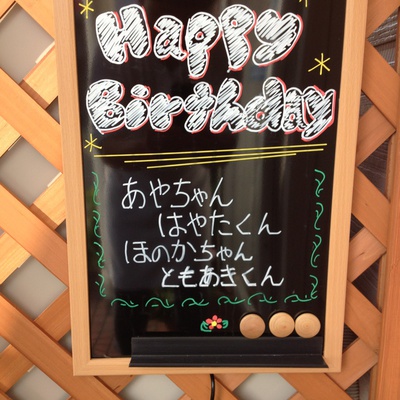 Happy
Birthday
あやちゃん
はやたくん
ほのかちゃん
ともあきくん